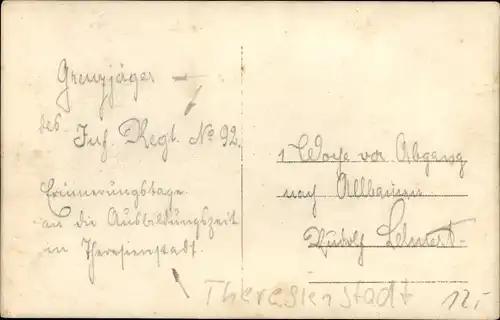 Grenzjäger
des
Inf. Regt. No 92.
Erinnerungstage
an die Ausbildungszeit
in Theresienstadt.
1 Woche vor Abgang
nach Allbanien
Rudolf
Theresienstadt 12,-